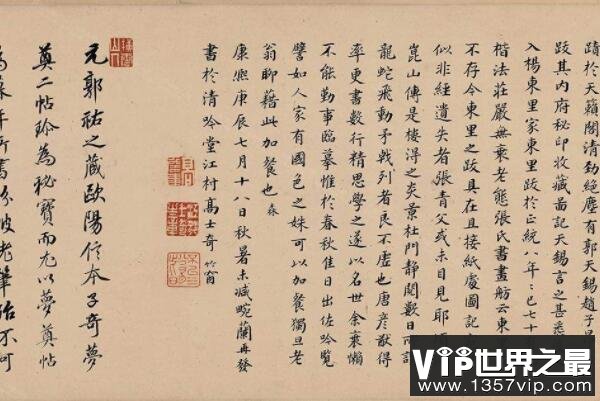 蹟於天籟閣清勁絕塵有郭天錫趙子昂
跋其内府秘印收藏啚記天錫言之甚悉
入楊東里家東里跋於正統八年已七十
楷法莊嚴無衰老態張氏書畫舫云東
不存今東里之跋具在且接紙處圖記
似非經遺失者張青父或未目見耶
崑山傳是樓得之炎景杜門静閲數日
龍蛇飛動矛戟列者良不虚也唐彦猷得
率更書數行精思學之遂以名世余衰懶
不能勤事臨摹惟於春秋佳日出佐吟覧
譬如人家有國色之姝可以加餐獨旦老
翁聊藉此加餐也
康熙庚辰七月十八日秋暑未減畹蘭再發
書於清吟堂江村高士奇 竹窗
元郭祐之藏歐陽信本子奇夢
奠二帖珍為秘寶而尤以夢奠帖
VIP世界之最
www.1357vip.com